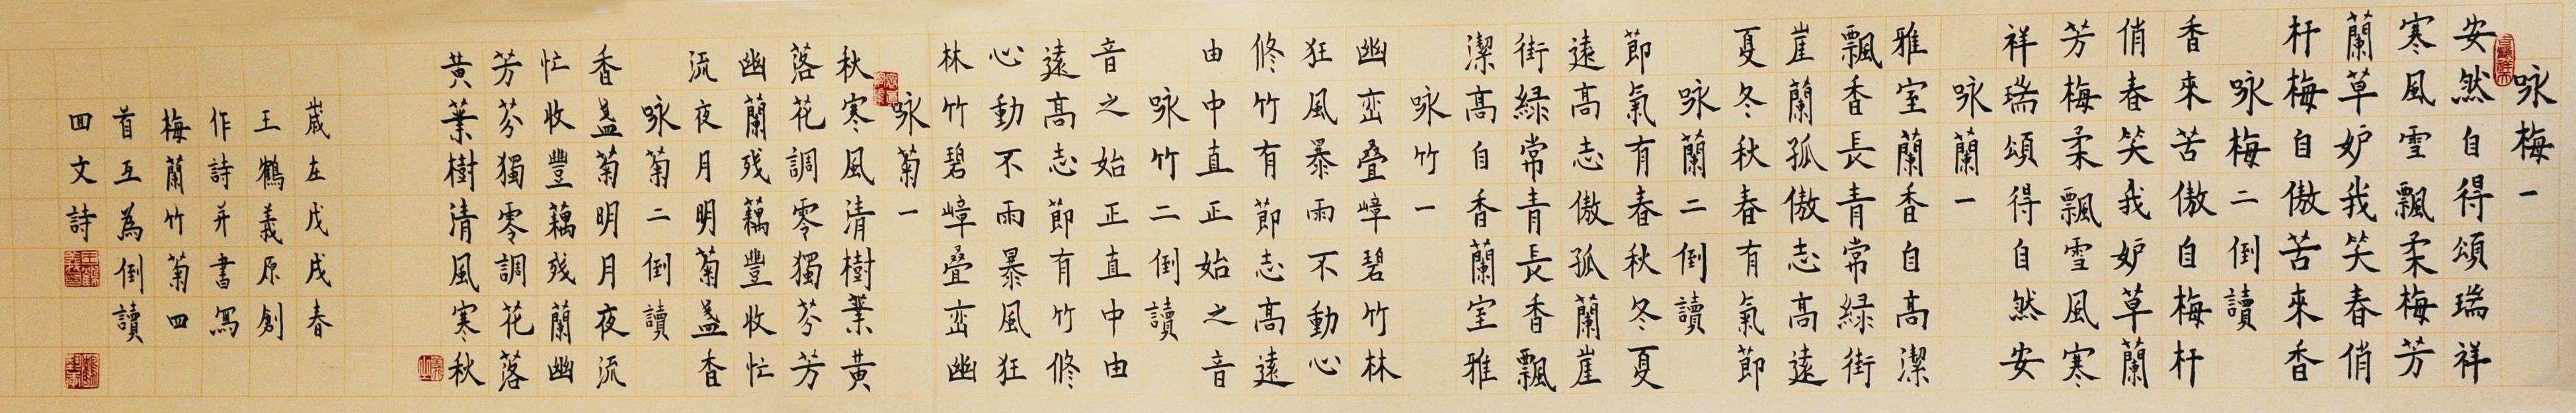 咏梅一
安然自得頌瑞祥
寒風雪飄柔梅芳
蘭草妒我笑春俏
杆梅自傲苦來香
咏梅二倒讀
香來苦傲自梅杆
俏春笑我妒草蘭
芳梅柔飄雪風寒
祥瑞頌得自然安
咏蘭一
雅室蘭香自高潔
飄香長青常緑街
崖蘭孤傲志高遠
夏冬秋春有氣節
咏蘭二倒讀
節氣有春秋冬夏
遠高志傲孤蘭崖
街緑常青長香飄
潔高自香蘭室雅
咏竹一
幽巒叠嶂碧竹林
狂風暴雨不動心
修竹有節志高遠
由中直正始之音
咏竹二倒讀
音之始正直中由
遠高志節有竹修
心動不雨暴風狂
林竹碧嶂叠巒幽
咏菊一
秋寒風清樹葉黄
落花調零獨芬芳
幽蘭残藕豐收忙
流夜月明菊盏香
咏菊二倒讀
香盏菊明月夜流
忙收豐藕残蘭幽
芳芬獨零調花落
黄葉樹清風寒秋
歲在戊戌春
王鶴義原創
作詩并書寫
梅蘭竹菊四
首互為倒讀
回文詩